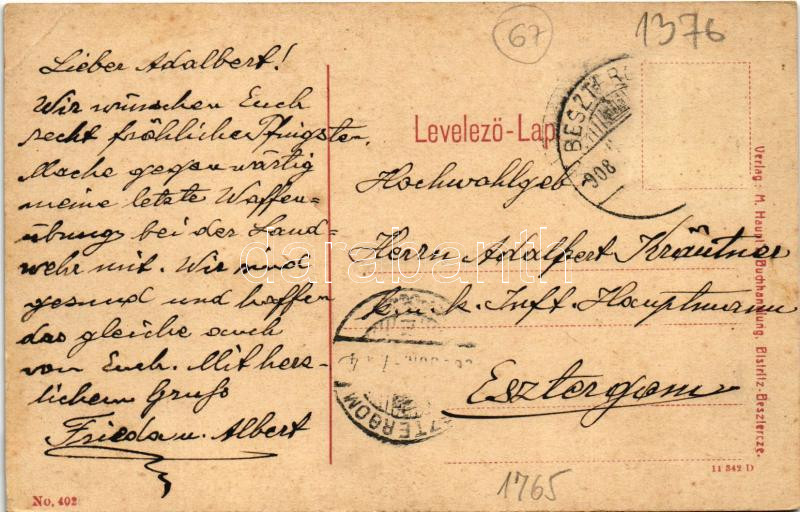 Lieber Adalbert!
Wir wünschen Euch
recht fröhliche Pfingsten.
Mache gegenwärtig
meine letzte Waffen-
übung bei der Land-
wehr mit. Wir sind
gesund und hoffen
das gleiche auch
von Euch. Mit herz-
lichem Gruß
Frieda u. Albert
No. 402
67
1376
Levelező-Lap
BESZTER
908
Hochwohlgeb
Herrn Adalpert Kräutner
k. u. k. Inft. Hauptmann
Esztergom
ESZTERGOM
1765
11 342 D
Verlag: M. Haupt, Buchhandlung, Bistritz-Besztercze.
darabanth.com